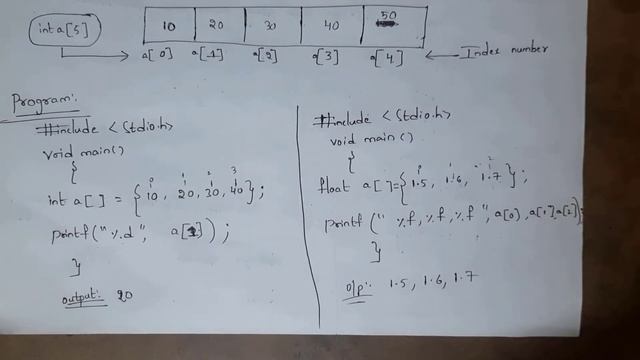 int a[5]
10 20 30 40 50
a[0] a[1] a[2] a[3] a[4] ← Index number
Program:
#include <stdio.h>
void main()
{
int a[ ] = {10, 20, 30, 40};
0 1 2 3
printf("%d", a[1]);
}
output: 20
#include <stdio.h>
void main()
{
float a[ ]={1.5, 1.6, 1.7};
0 1 2
printf("%f,%f,%f", a[0],a[1],a[2]);
}
o/p: 1.5, 1.6, 1.7